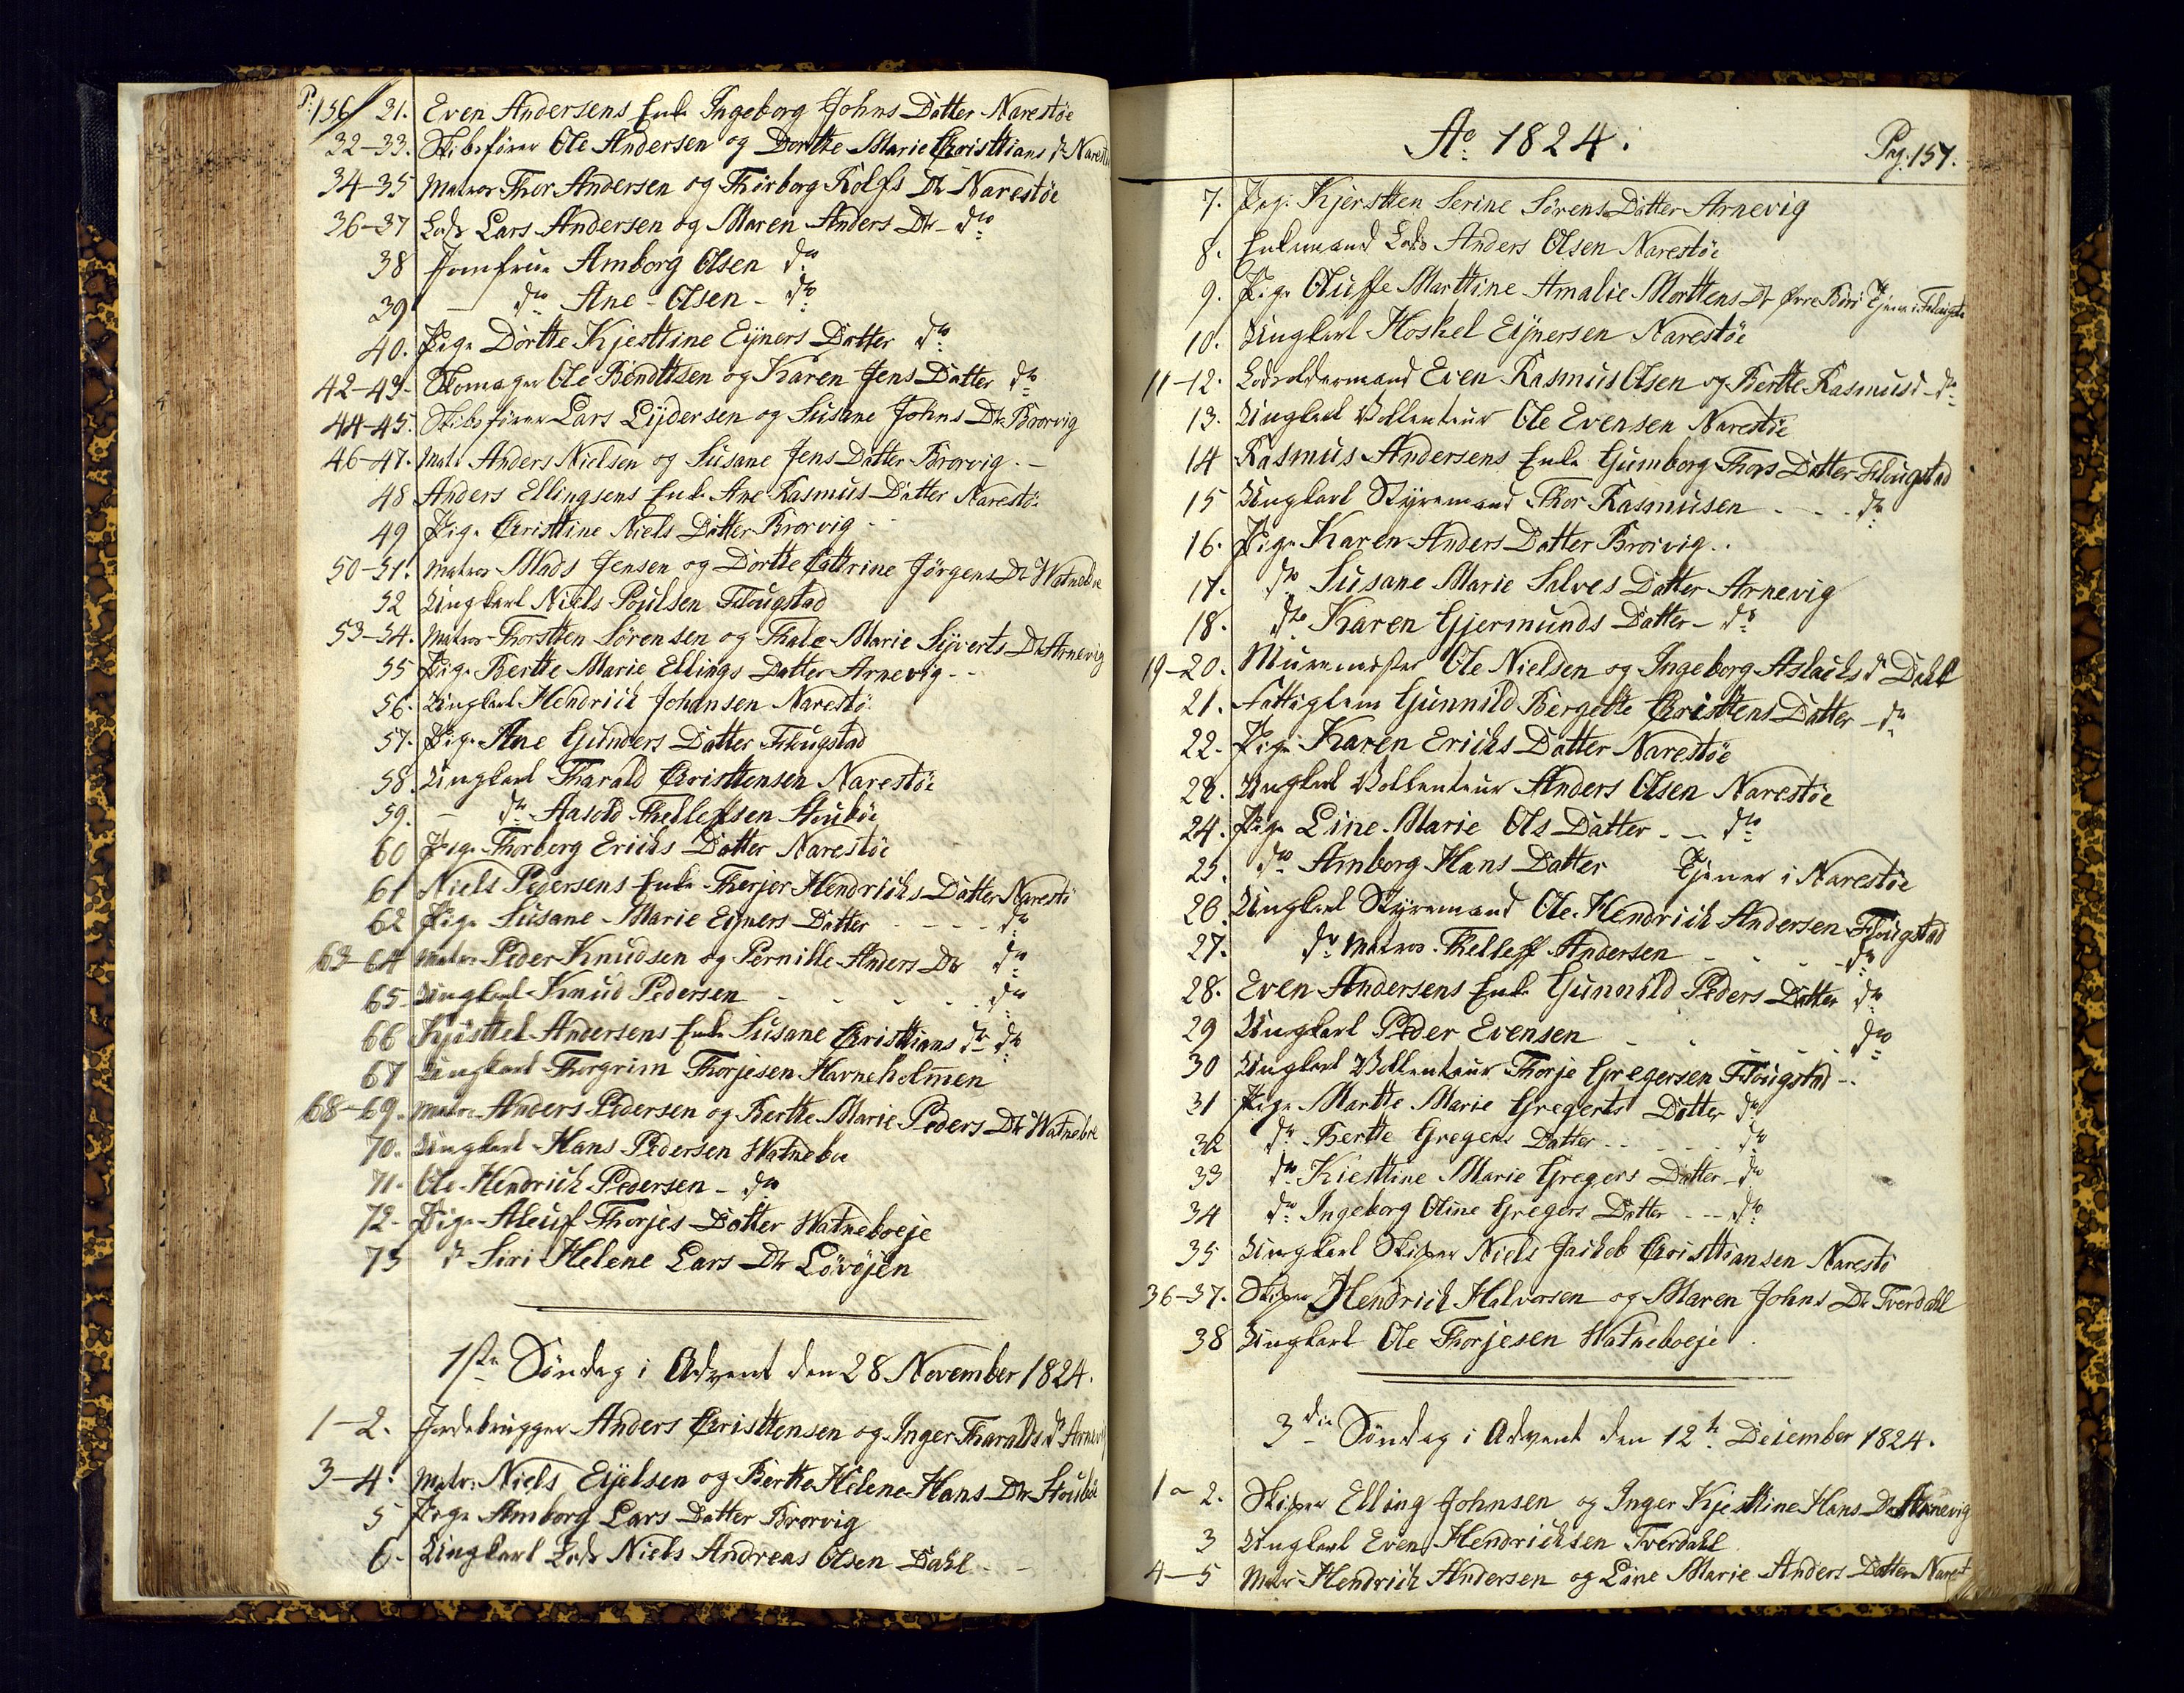 P: 156 31. Even Andersens Enke Ingeborg Johns Datter Narestöe
32-33. Skibsfører Ole Andersen og Dorthe Marie Christtians dr Narestö
34-35 Matros Thor Andersen og Thorborg Rolfs Dtr Narestöe
36-37 Lods Lars Andersen og Maren Anders Dtr - do
38 Jomfrue Amborg Olsen do
39 - do Ane - Olsen - do
40. Pige Dortte Kjesttine Eyners Datter do
42-43. Skomager Ole Bendttsen og Karen Jens Datter do
44-45. Skibsfører Lars Lydersen og Susane Johns Dtr Brorvig
46-47. Matr Anders Nielsen og Susane Jens Datter Brorvig. -
48 Anders Ellingsens Enke Ane Rasmus Datter Narestö:
49 Pige Christtine Niels Datter Brorvig - -
50-51. Matros Mads Jensen og Dortte Cattrine Jörgens Dtr Watneboe
52 Ungkarl Niels Poulsen Flougstad
53-54. Matros Thorstten Sörensen og Thale Marie Syverts Dtr Arnevig
55 Pige Bertte Marie Ellings Datter Arnevig - -
56. Ungkarl Hendrich Johansen Narestö.
57. Pige Ane Gunders Datter Flougstad
58. Ungkarl Tharald Christtensen Narestöe
59. - do Aasold Thelleffsen Stouböe
60 Pige Thorborg Erichs Datter Narestöe
61 Niels Pedersens Enke Therjer Hendrichs Datter Narestö
62 Pige Susane Marie Eyners Datter - - - - do
63-64 Matro Peder Knudsen og Pernille Anders Dtr do
65 Ungkarl Knud Pedersen - - - - do
66 Kjösttel Andersens Enke Susane Christtians dr do
67 Ungkarl Thorgrim Thorjesen Havneholmen
68-69. Matro Anders Pedersen og Bertte Marie Peders Dtr Watneboe
70. Ungkarl Hans Pedersen Watneboe
71. Ole Hendrich Pedersen - do
72- Pige Aleuf Thorjes Datter Watneboeje
73 do Siri Helene Lars Dtr Lövöjen
1ste Söndag i Advent den 28 November 1824.
1-2. Jordebrugger Anders Christtensen og Inger Tharalds dr Arnevig
3-4. Matr: Niels Eyelsen og Bertte Helene Hans Dtr Stouböe
5 Pige Amborg Lars Datter Brorvig
6. Ungkarl Lods Niels Andreas Olsen Dahl - -
Ao 1824.
Pag. 157.
7. Pige Kjerstten Serine Sörens Datter Arnevig
8. Enkemand Lods Anders Olsen Narestöe
9. Pige Oluffe Marttine Amalie Morttens Dr Tjener i Flougstad
10. Ungkarl Hoskel Eynersen Narestöe
11-12. Lodsoldermand Even Rasmus Olsen og Bertte Rasmus d - do
13. Ungkarl Vollenteur Ole Evensen Narestöe
14 Rasmus Andersens Enke Gumborg Thors Datter Flougstad
15 Ungkarl Styrmand Thor Rasmusen - - - do
16. Pige Karen Anders Datter Brorvig. .
17. do Susane Marie Salves Datter Arnevig
18. do Karen Gjermunds Datter - do
19-20. Muurmester Ole Nielsen og Ingeborg Aslachs d Dahl
21. Fattiglem Gunnild Bergette Christtens Datter - do
22. Pige Karen Erichs Datter Narestöe
23. Ungkarl Vollenteur Anders Olsen Narestöe
24. Pige Line Marie Ols Datter - - do
25. do Amborg Hans Datter Tjener i Narestöe
26 Ungkarl Styrmand Ole Hendrich Andersen Flougstad
27. do Matros Thelleff Andersen - - - do
28. Even Andersens Enke Gunnild Peders Datter do
29 Ungkarl Peder Evensen - - - - do
30 Ungkarl Vollenteur Thorje Gregersen Flougstad - .
31 Pige Martte Marie Gregerts Datter do
32 do Bertte Gregers Datter - - - do
33 do Kiesttine Marie Gregers Datter - do
34 do Ingeborg Oline Gregers Datter - - do
35 Ungkarl Skiper Niels Jachob Christtiansen Narestö
36-37. Skiper Hendrich Halvorsen og Maren Johns Dr Tverdahl
38 Ungkarl Ole Thorjesen Watneboeje .
3die Söndag i Advent den 12te December 1824.
1-2. Skiper Elling Johnsen og Inger Kjesttine Hans Dr Arnevig
3 Ungkarl Even Hendrichsen Tverdahl.
4-5 Matr Hendrich Andersen og Line Marie Anders Datter Narest